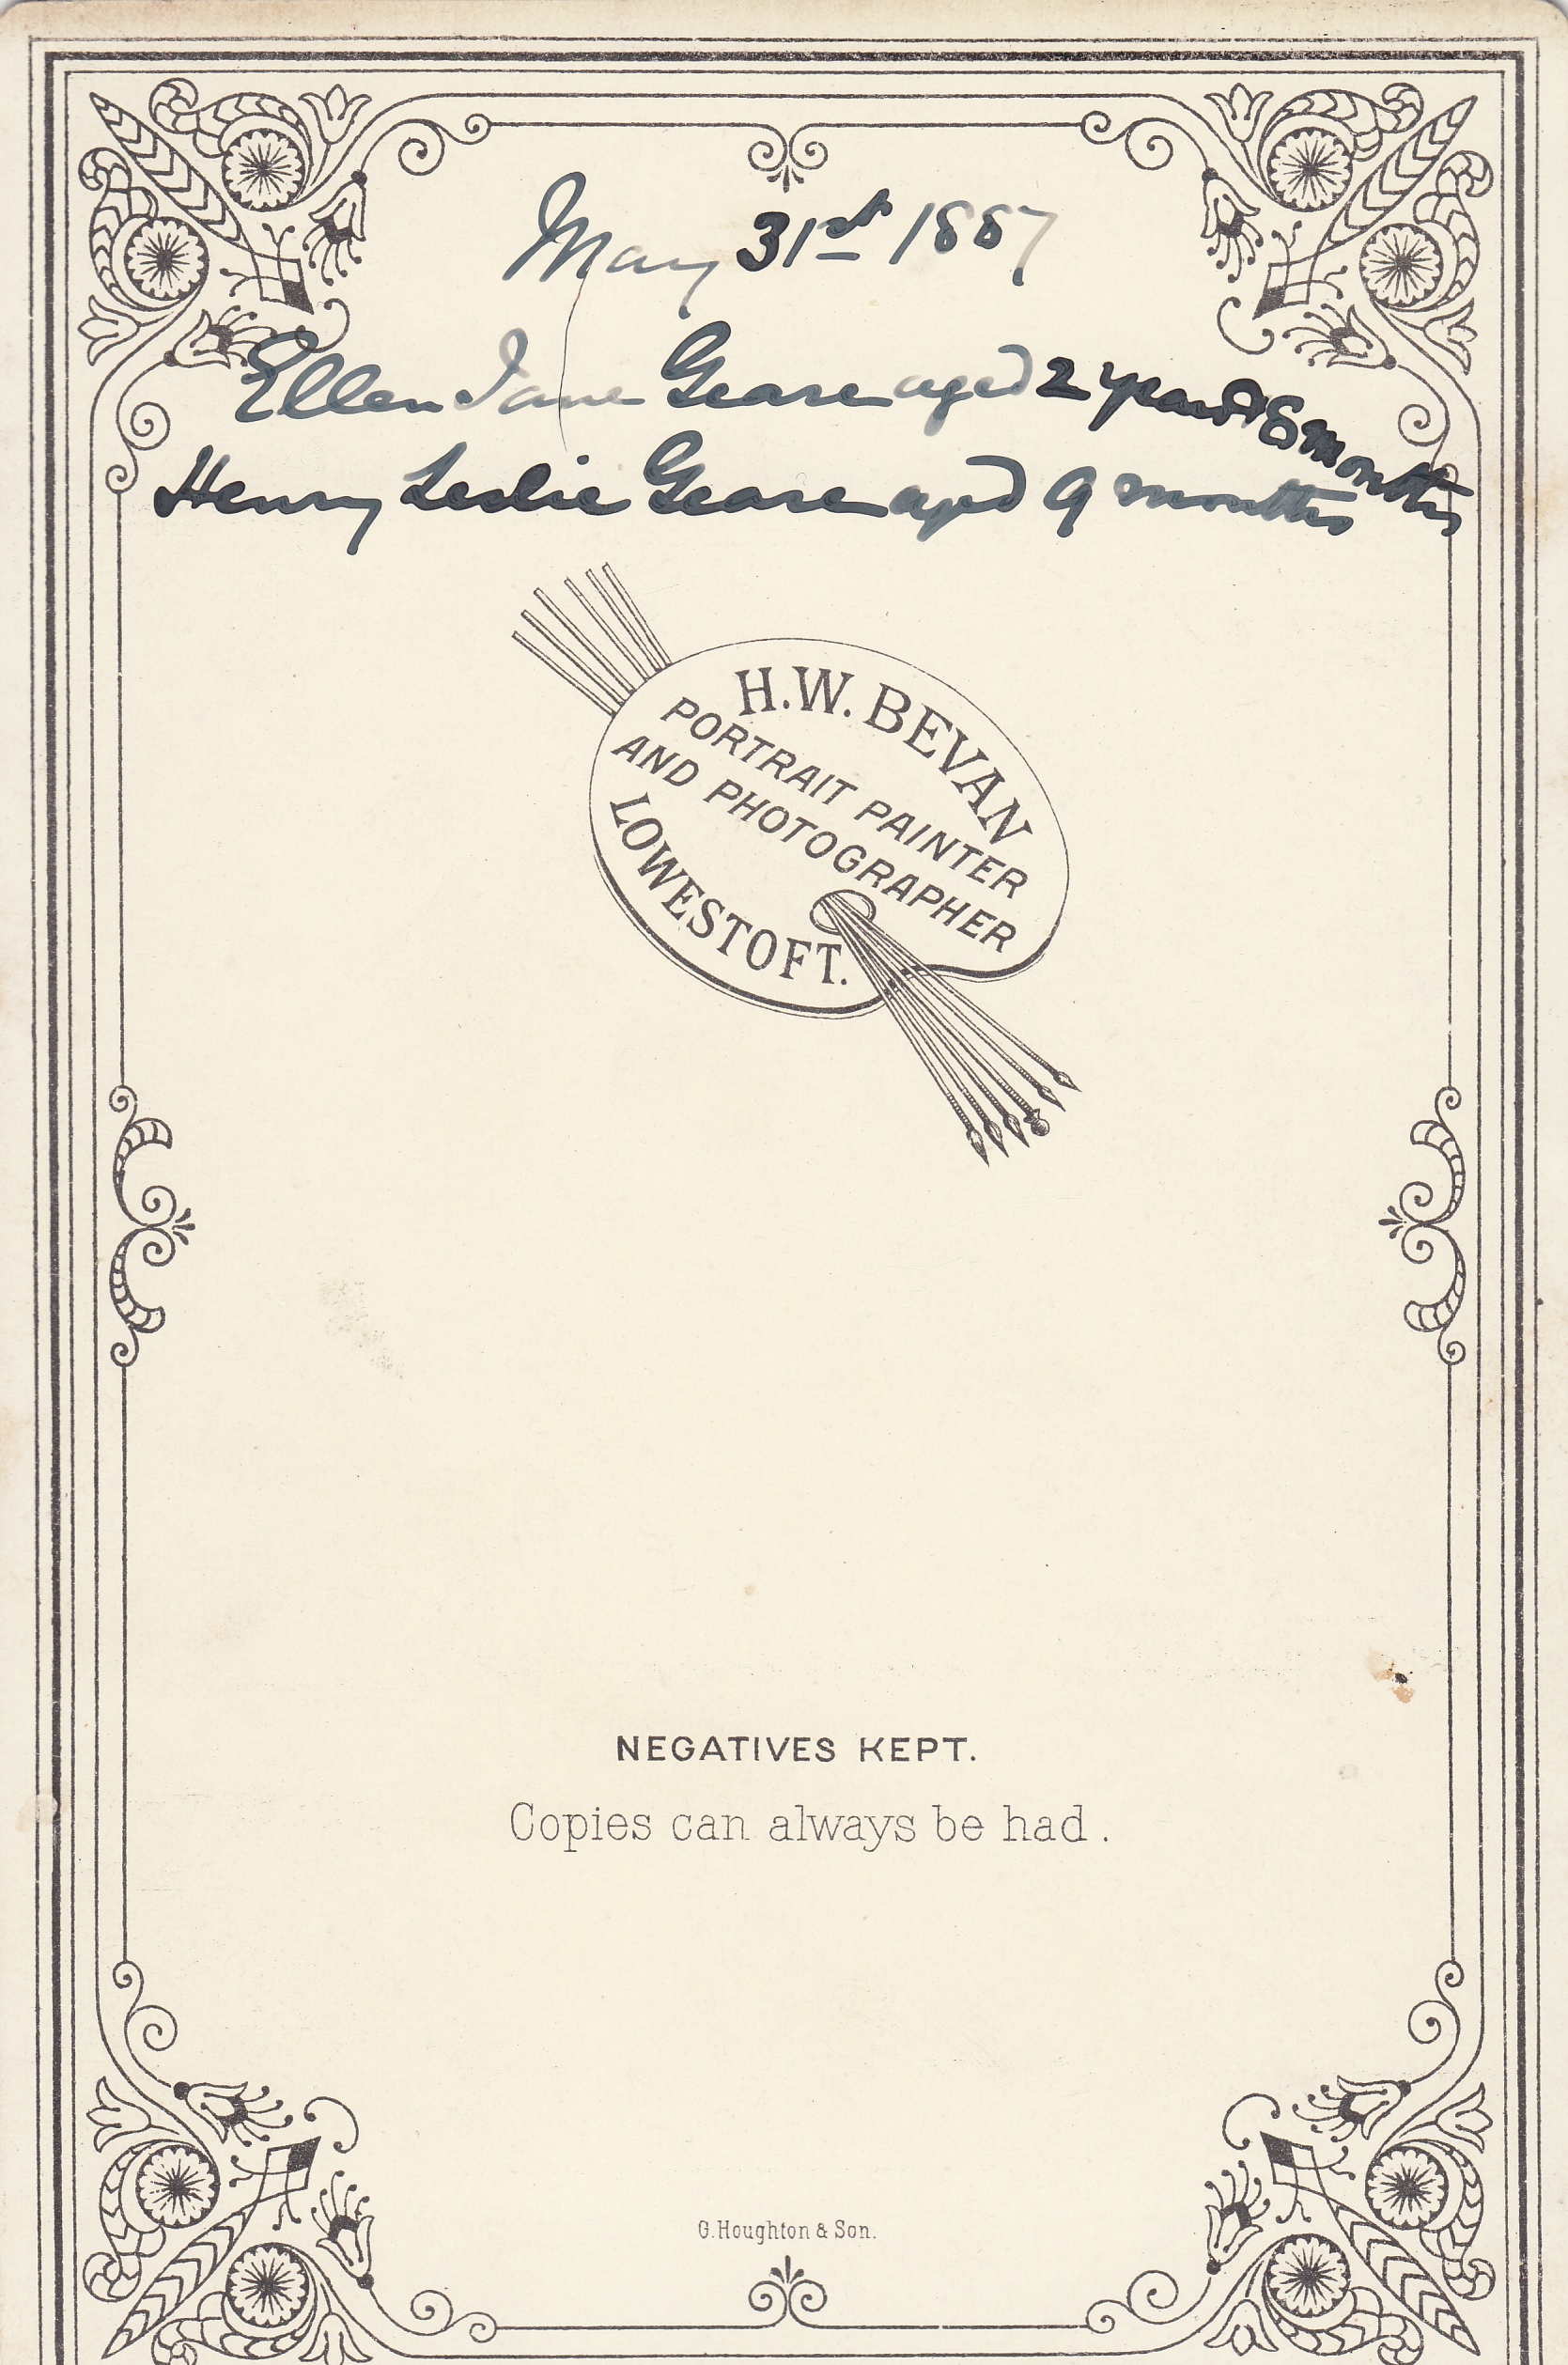 May 31st 1887
Ellen Jane Gease aged 2 years & 8 months
Henry Leslie Gease aged 9 months
H.W. BEVAN
PORTRAIT PAINTER
AND PHOTOGRAPHER
LOWESTOFT.
NEGATIVES KEPT.
Copies can always be had.
G. Houghton & Son.